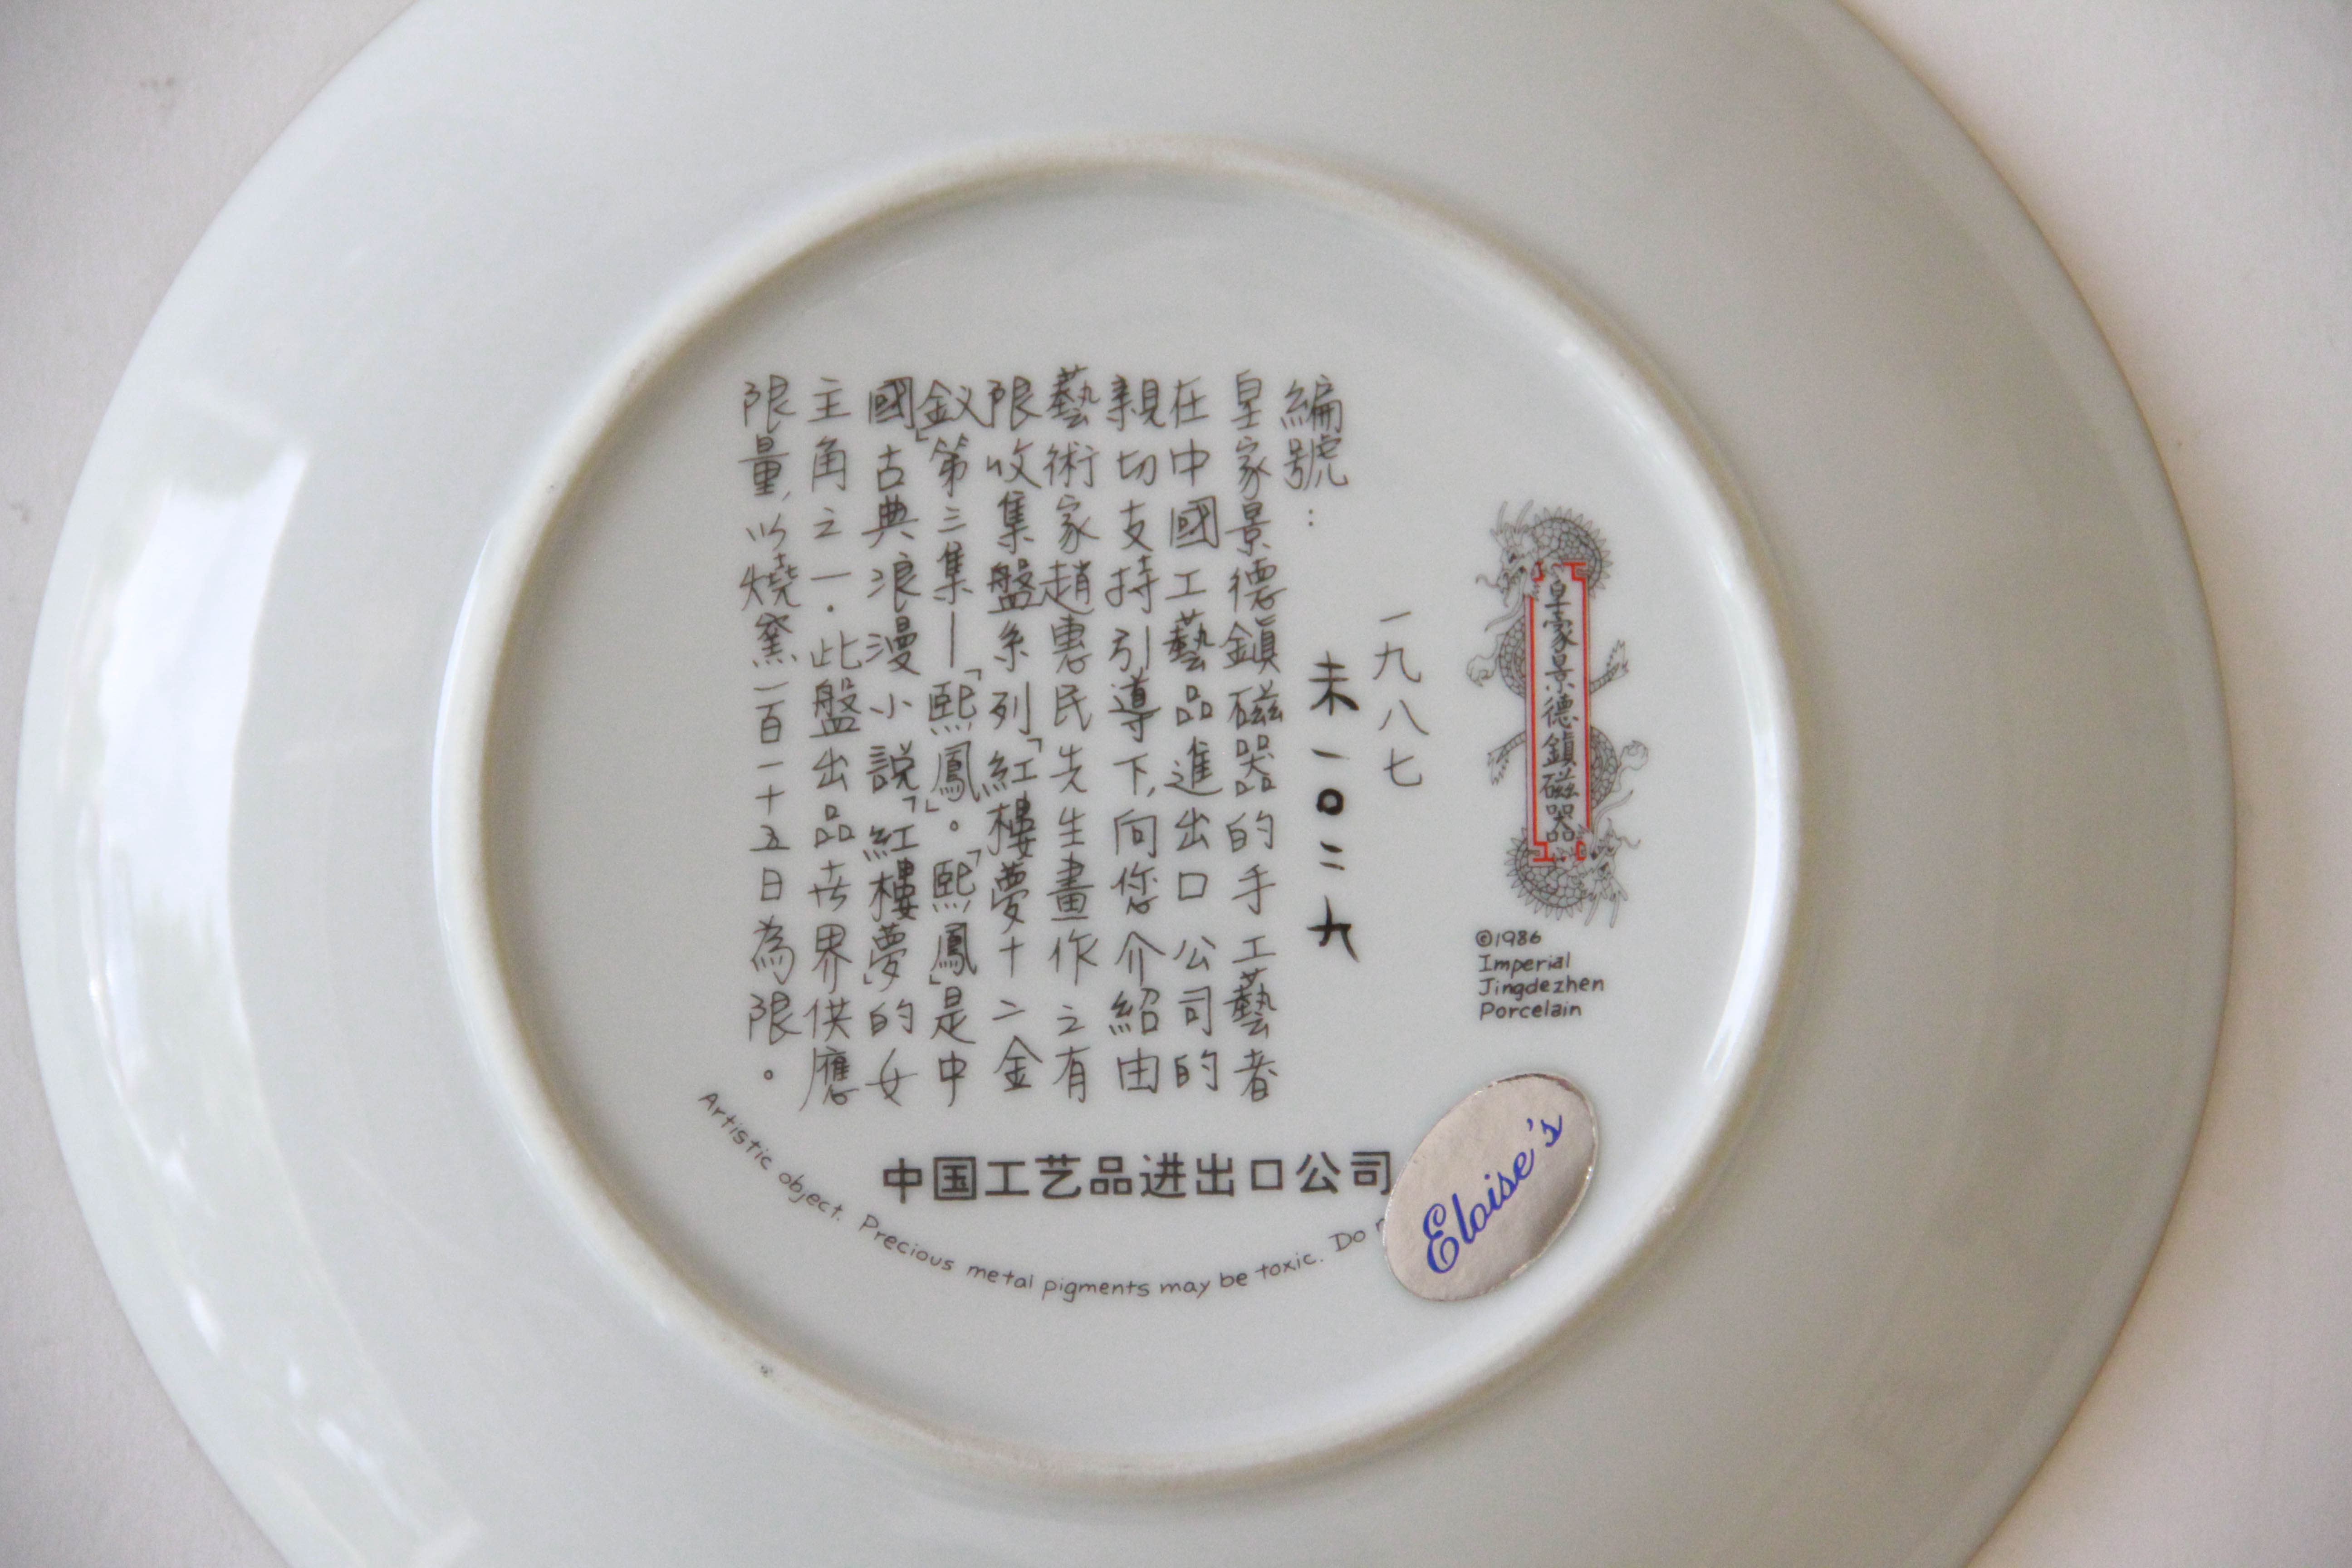 皇家景德鎮磁器
©1986
Imperial
Jingdezhen
Porcelain
一九八七
未一〇二九
編號：
皇家景德鎮磁器的手工藝者
在中國工藝品進出口公司的
親切支持引導下,向您介紹由
藝術家趙惠民先生畫作之有
限收集盤系列「紅樓夢十二金
釵」第三集—「熙鳳」。「熙鳳」是中
國古典浪漫小說「紅樓夢」的女
主角之一.此盤出品去世界供應
限量,以燒窯一百一十五日為限。
中国工艺品进出口公司
Artistic object. Precious metal pigments may be toxic. Do
Eloise's